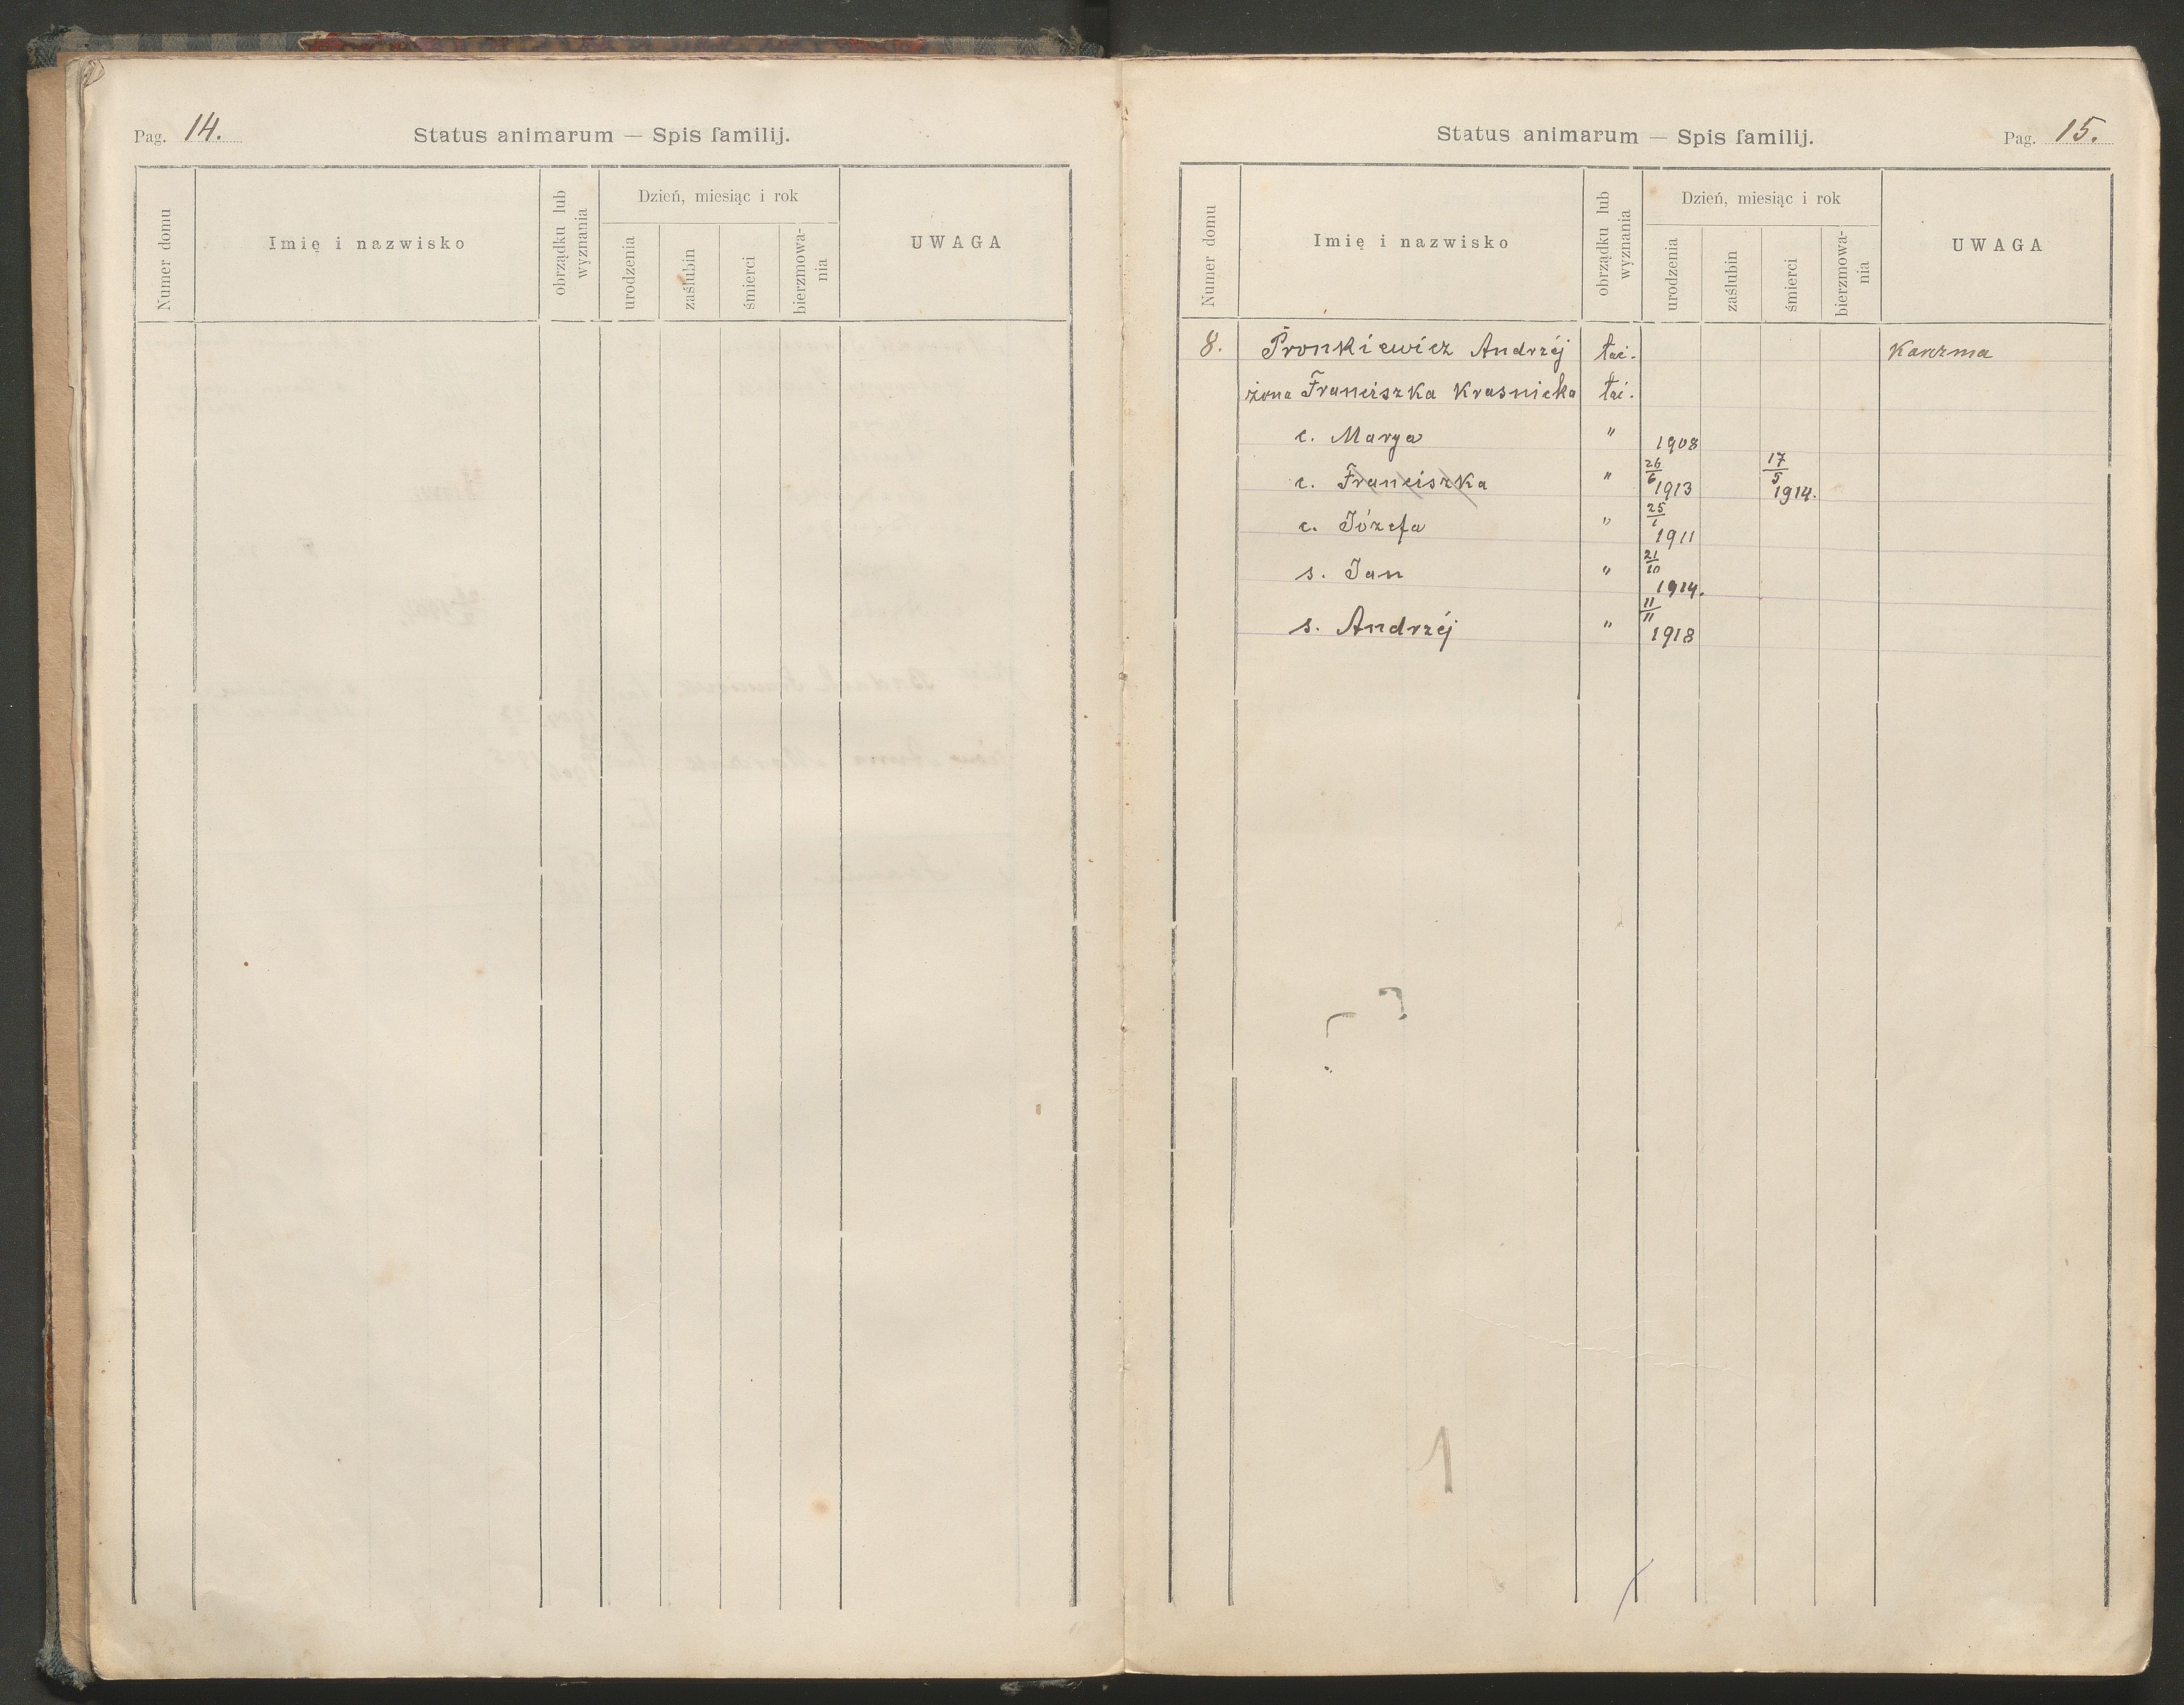 Pag. 14.
Status animarum — Spis familij.
Numer domu
Imię i nazwisko
obrządku lub wyznania
Dzień, miesiąc i rok
urodzenia
zaślubin
śmierci
bierzmowa-
nia
UWAGA
Status animarum — Spis familij.
Pag. 15.
Numer domu
Imię i nazwisko
obrządku lub wyznania
Dzień, miesiąc i rok
urodzenia
zaślubin
śmierci
bierzmowa-
nia
UWAGA
8. Pronkiewicz Andrzéj łać. Karczma
żona Franciszka Krasnicka łać.
c. Marya " 1908
c. Franciszka " 26/6 1913 17/5 1914.
c. Józefa " 25/1 1911
s. Jan " 21/10 1914.
s. Andrzéj " 11/11 1918
1